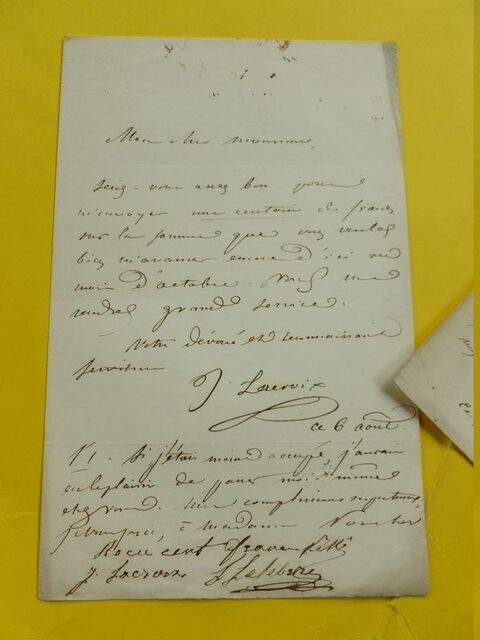 Mon cher monsieur,
Seriez-vous assez bon pour
m'envoyer une centaine de francs
sur la somme que vous voulez
bien m'avancer encore d'ici au
mois d'octobre. Vous me
rendrez grand service.
Votre dévoué et reconnaissant
serviteur
J. Lacroix
ce 6 août.
Si j'étais moins occupé, j'aurais
eu le plaisir de moi même
chez vous. Mes compliments respectueux,
à madame
Recu cent francs
J. Lacroix Lefebvre